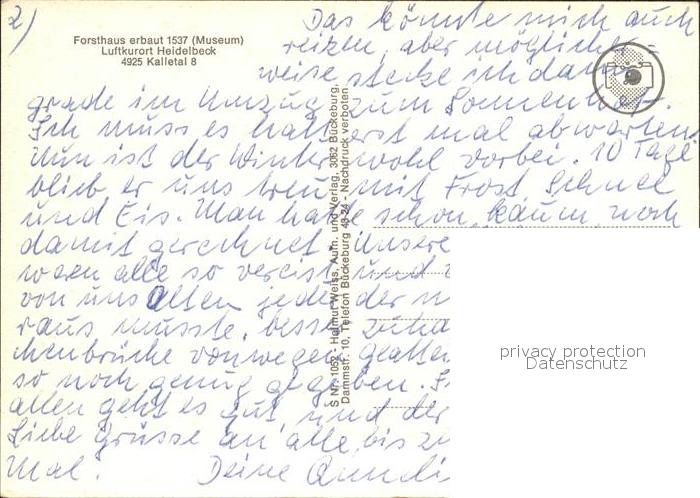 2)
Forsthaus erbaut 1537 (Museum)
Luftkurort Heidelbeck
4925 Kalletal 8
Das könnte mich auch
reizen, aber möglicher-
weise stecke ich dann
grade im Umzug zum Sonnenhof.
Ich muss es halt erst mal abwarten.
Nun ist der Winter wohl vorbei. 10 Tage
blieb er uns treu mit Frost Schnee
und Eis. Man hatte schon kaum noch
damit gerechnet. Unsere
waren alle so vereist und
von uns Alten jeder der
raus musste, besser
chenbrüche vonwegen
so noch genug gegeben.
allen geht es gut, und der
Liebe Grüsse an alle, bis
Mal. Deine
S Nr. 1052 - Helmut Weiss, Aufn. und Verlag, 3062 Bückeburg,
Dammstr. 10, Telefon Bückeburg 43 24 - Nachdruck verboten
privacy protection
Datenschutz